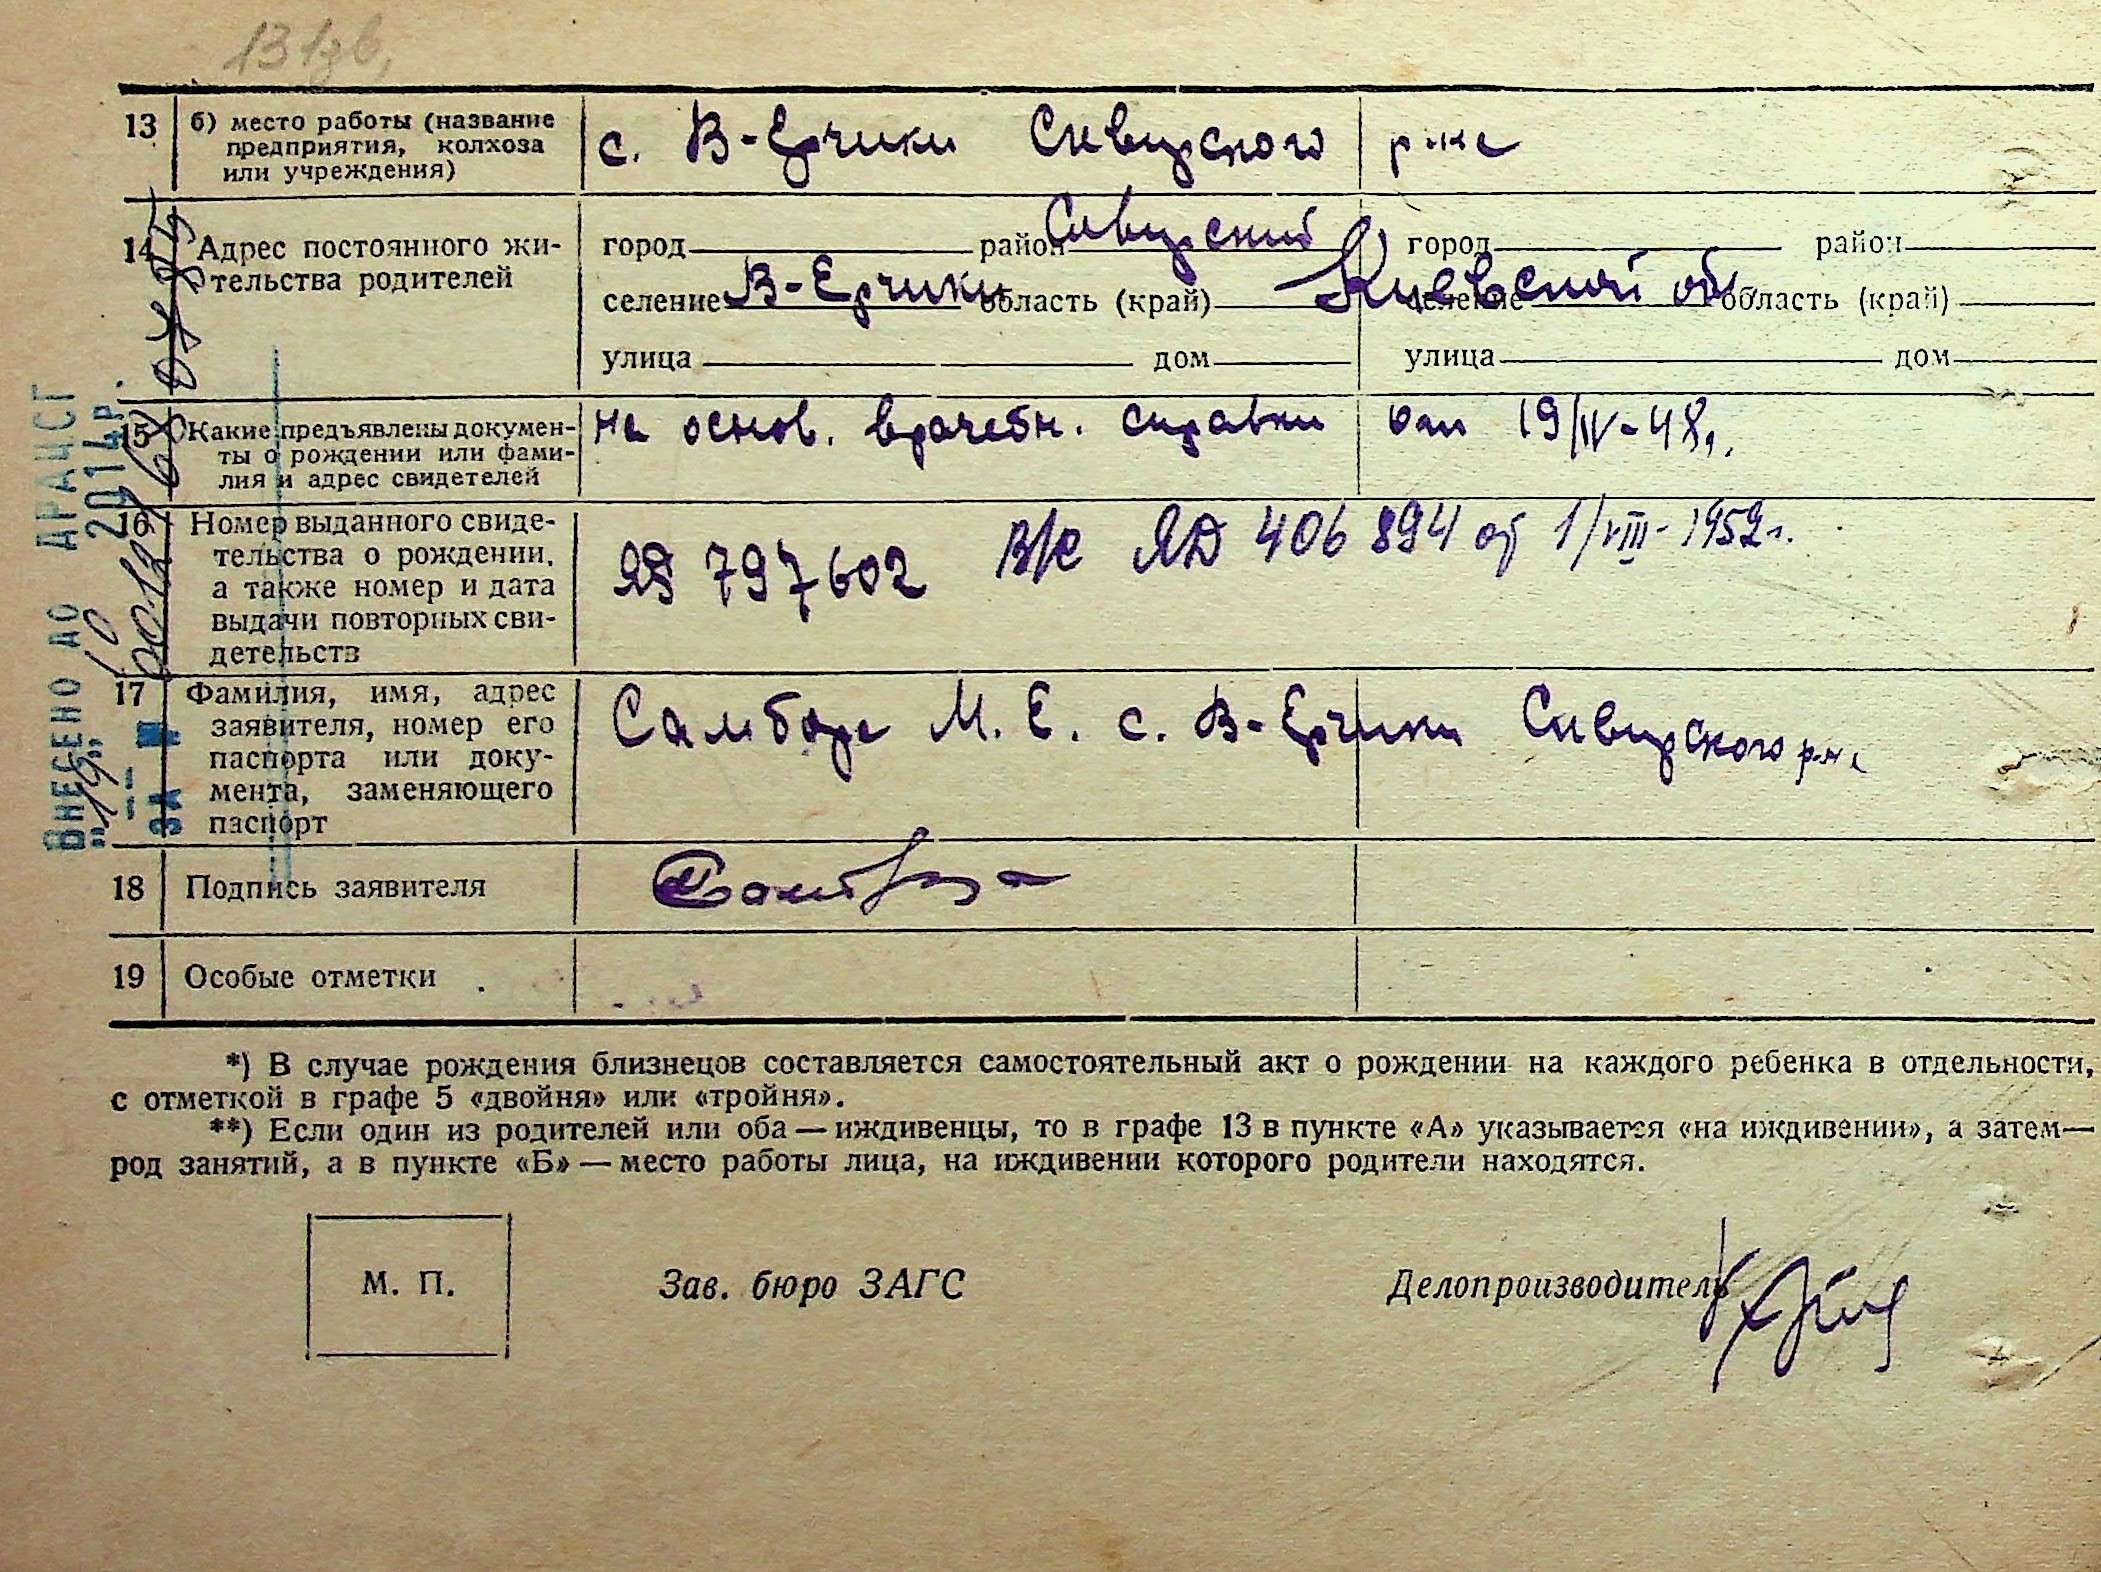 13 б) место работы (название
предприятия, колхоза
или учреждения)
с. В-Ерчики Сквирского р-на
14 Адрес постоянного жи-
тельства родителей
город район Сквирский город район
селение В-Ерчики область (край) Киевской об. селение область (край)
улица дом улица дом
15 Какие предъявлены докумен-
ты о рождении или фами-
лия и адрес свидетелей
на основ. врачебн. справки от 19/IV-48г.
16 Номер выданного свиде-
тельства о рождении,
а также номер и дата
выдачи повторных сви-
детельств
797602 ЯД 406894 от 1/VIII-1952г.
17 Фамилия, имя, адрес
заявителя, номер его
паспорта или доку-
мента, заменяющего
паспорт
Самбора М. Е. с. В-Ерчики Сквирского р-на
18 Подпись заявителя
19 Особые отметки
ВНЕСЕНО ДО ДРАЦСГ
"19" 10 2014р.
ЗА №
*) В случае рождения близнецов составляется самостоятельный акт о рождении на каждого ребенка в отдельности,
с отметкой в графе 5 «двойня» или «тройня».
**) Если один из родителей или оба — иждивенцы, то в графе 13 в пункте «А» указывается «на иждивении», а затем—
род занятий, а в пункте «Б» — место работы лица, на иждивении которого родители находятся.
М. П. Зав. бюро ЗАГС Делопроизводитель